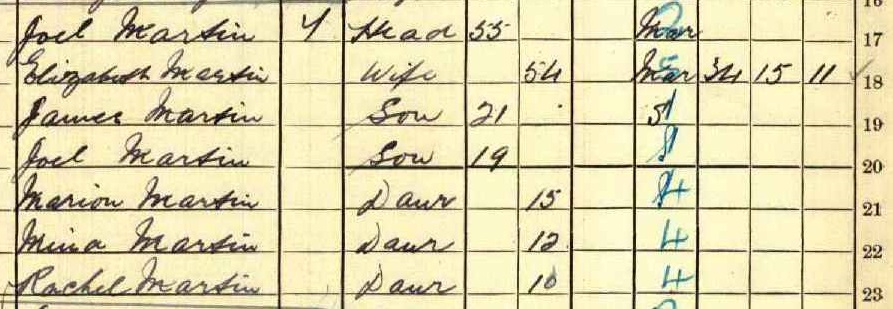 16
Joel Martin Head 55 Mar 17
Elizabeth Martin Wife 54 Mar 34 15 11 18
James Martin Son 21 S 19
Joel Martin Son 19 20
Marion Martin Daur 15 4 21
Mina Martin Daur 12 4 22
Rachel Martin Daur 10 4 23